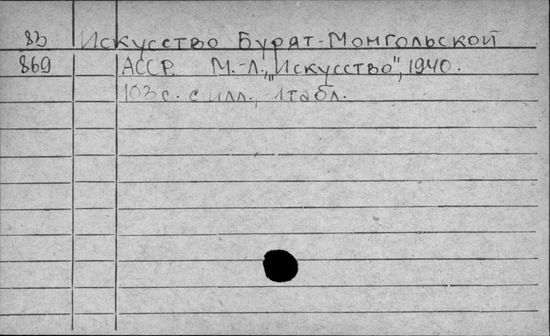 83 Искусство Бурят-Монгольской
869 АССР. М.-Л., "Искусство", 1940.
103 с. с илл., 1 табл.